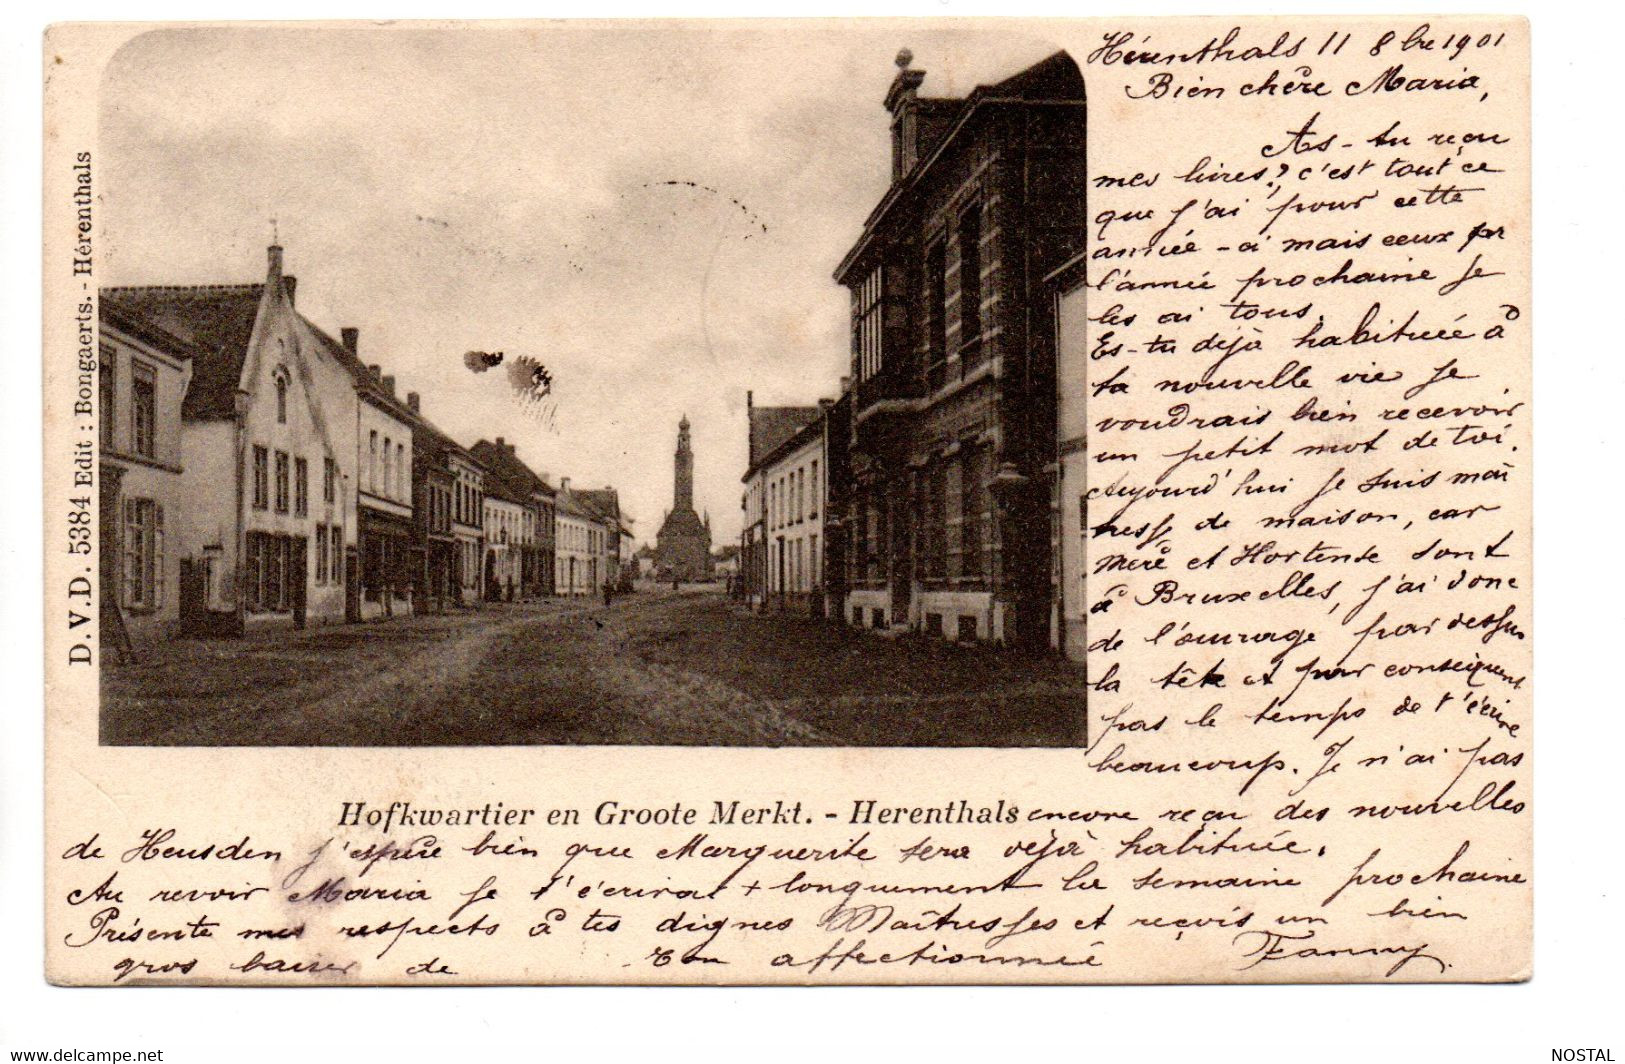 Hérenthals 11 8bre 1901
Bien chère Maria,
As-tu reçu
mes livres? c'est tout ce
que j'ai pour cette
année-ci mais ceux pr
l'année prochaine je
les ai tous.
Es-tu déjà habituée à
ta nouvelle vie je
voudrais bien recevoir
un petit mot de toi.
Aujourd'hui je suis maî
tresse de maison, car
mère et Hortense sont
à Bruxelles, j'ai donc
de l'ouvrage par dessus
la tête et par conséquent
pas le temps de t'écrire
beaucoup. Je n'ai pas
encore reçu des nouvelles
de Heusden j'espère bien que Marguerite sera déjà habituée.
Au revoir Maria je t'écrirai + longuement la semaine prochaine
Présente mes respects à tes dignes Maîtresses et reçois un bien
gros baiser de Ton affectionnée Fanny.
Hofkwartier en Groote Merkt. - Herenthals
D.V.D. 5384 Edit : Bongaerts. - Hérenthals
https://www.delcampe.net
NOSTAL